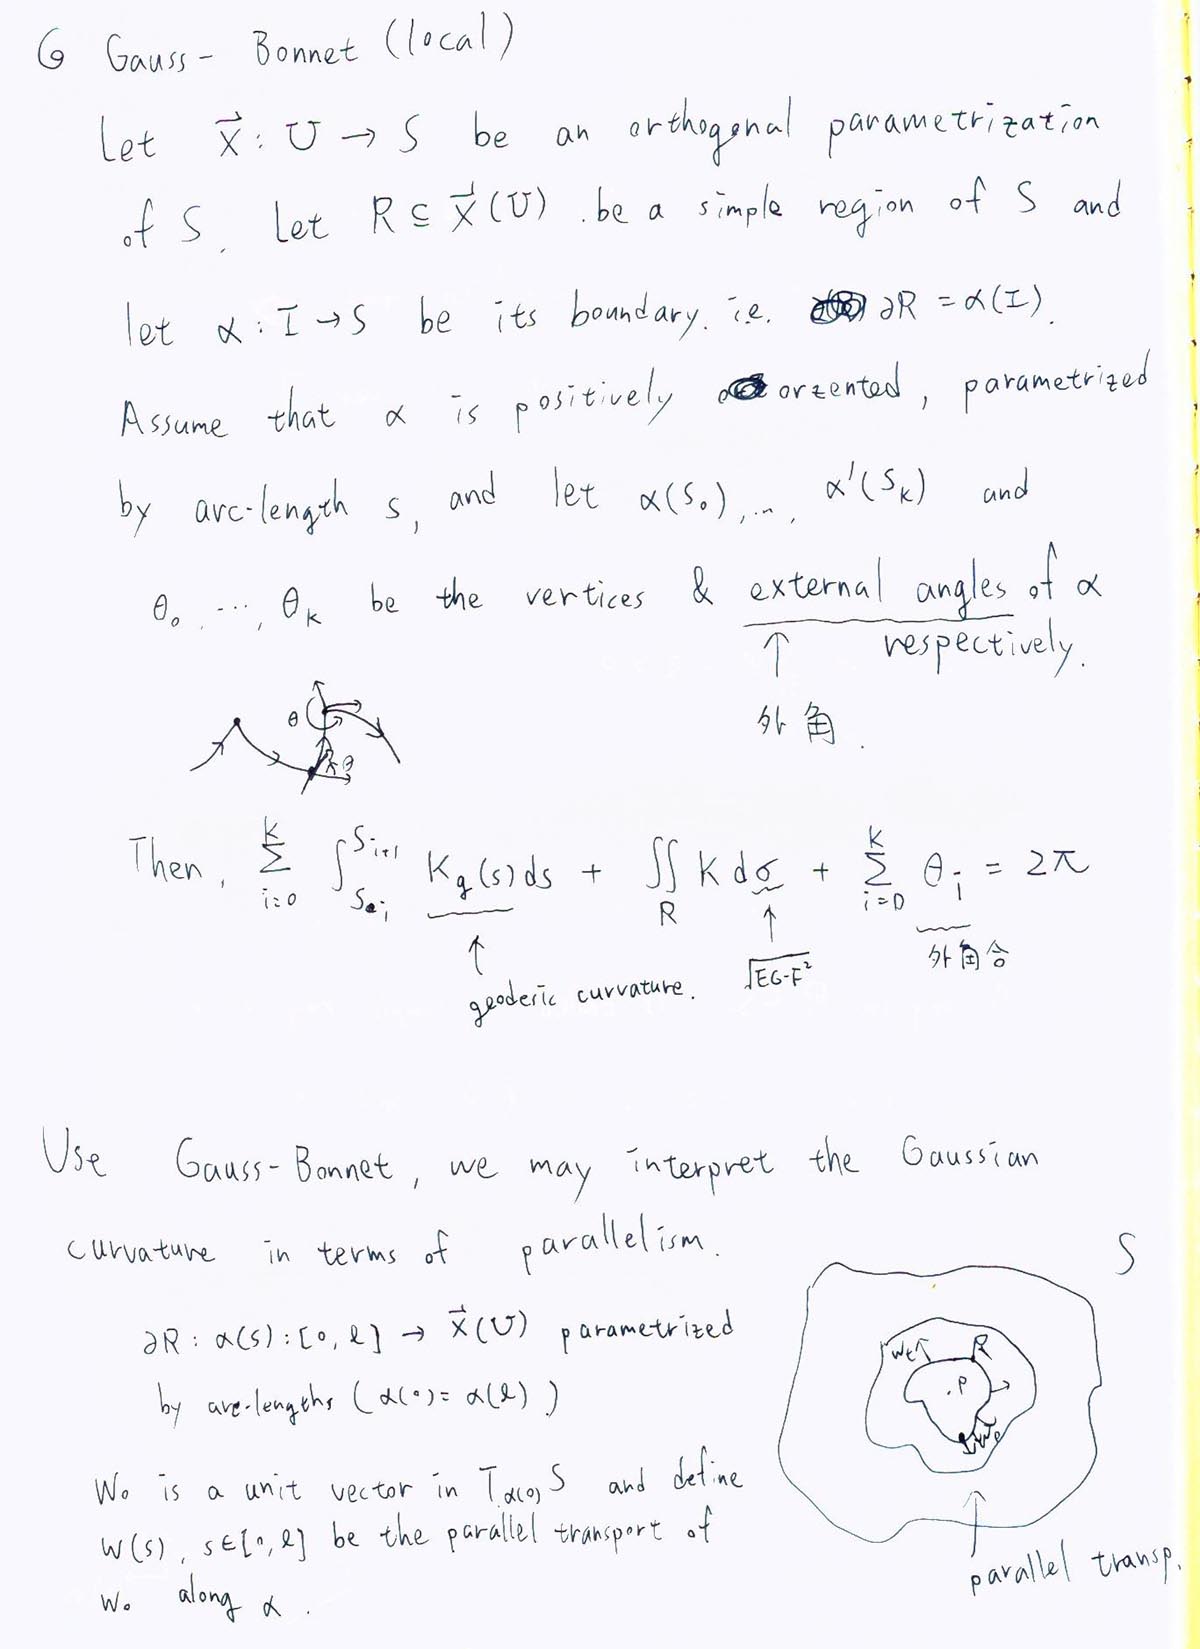 G Gauss- Bonnet (local)
Let X⃗ : U → S be an orthogonal parametrization
of S. Let R ⊆ X⃗(U). be a simple region of S and
let α : I → S be its boundary. i.e. ∂R = α(I).
Assume that α is positively orzented, parametrized
by arc-length s, and let α(S₀), ..., α'(S_K) and
θ₀, ..., θ_K be the vertices & external angles of α
respectively.
↑
外角.
θ
θ
Then, Σ_{i=0}^{K} ∫_{S_i}^{S_{i+1}} K_g(s)ds + ∬_R K dσ + Σ_{i=0}^{K} θ_i = 2π
↑ ↑ 外角合
geoderic curvature. √EG-F²
Use Gauss-Bonnet, we may interpret the Gaussian
curvature in terms of parallelism.
S
∂R : α(s) : [0, l] → X⃗(U) parametrized
by arc-lengths (α(0) = α(l))
R
.P
W₀ is a unit vector in T_{α(0)} S and define
W(s), s∈[0, l] be the parallel transport of
W₀ along α.
↑
parallel transp.